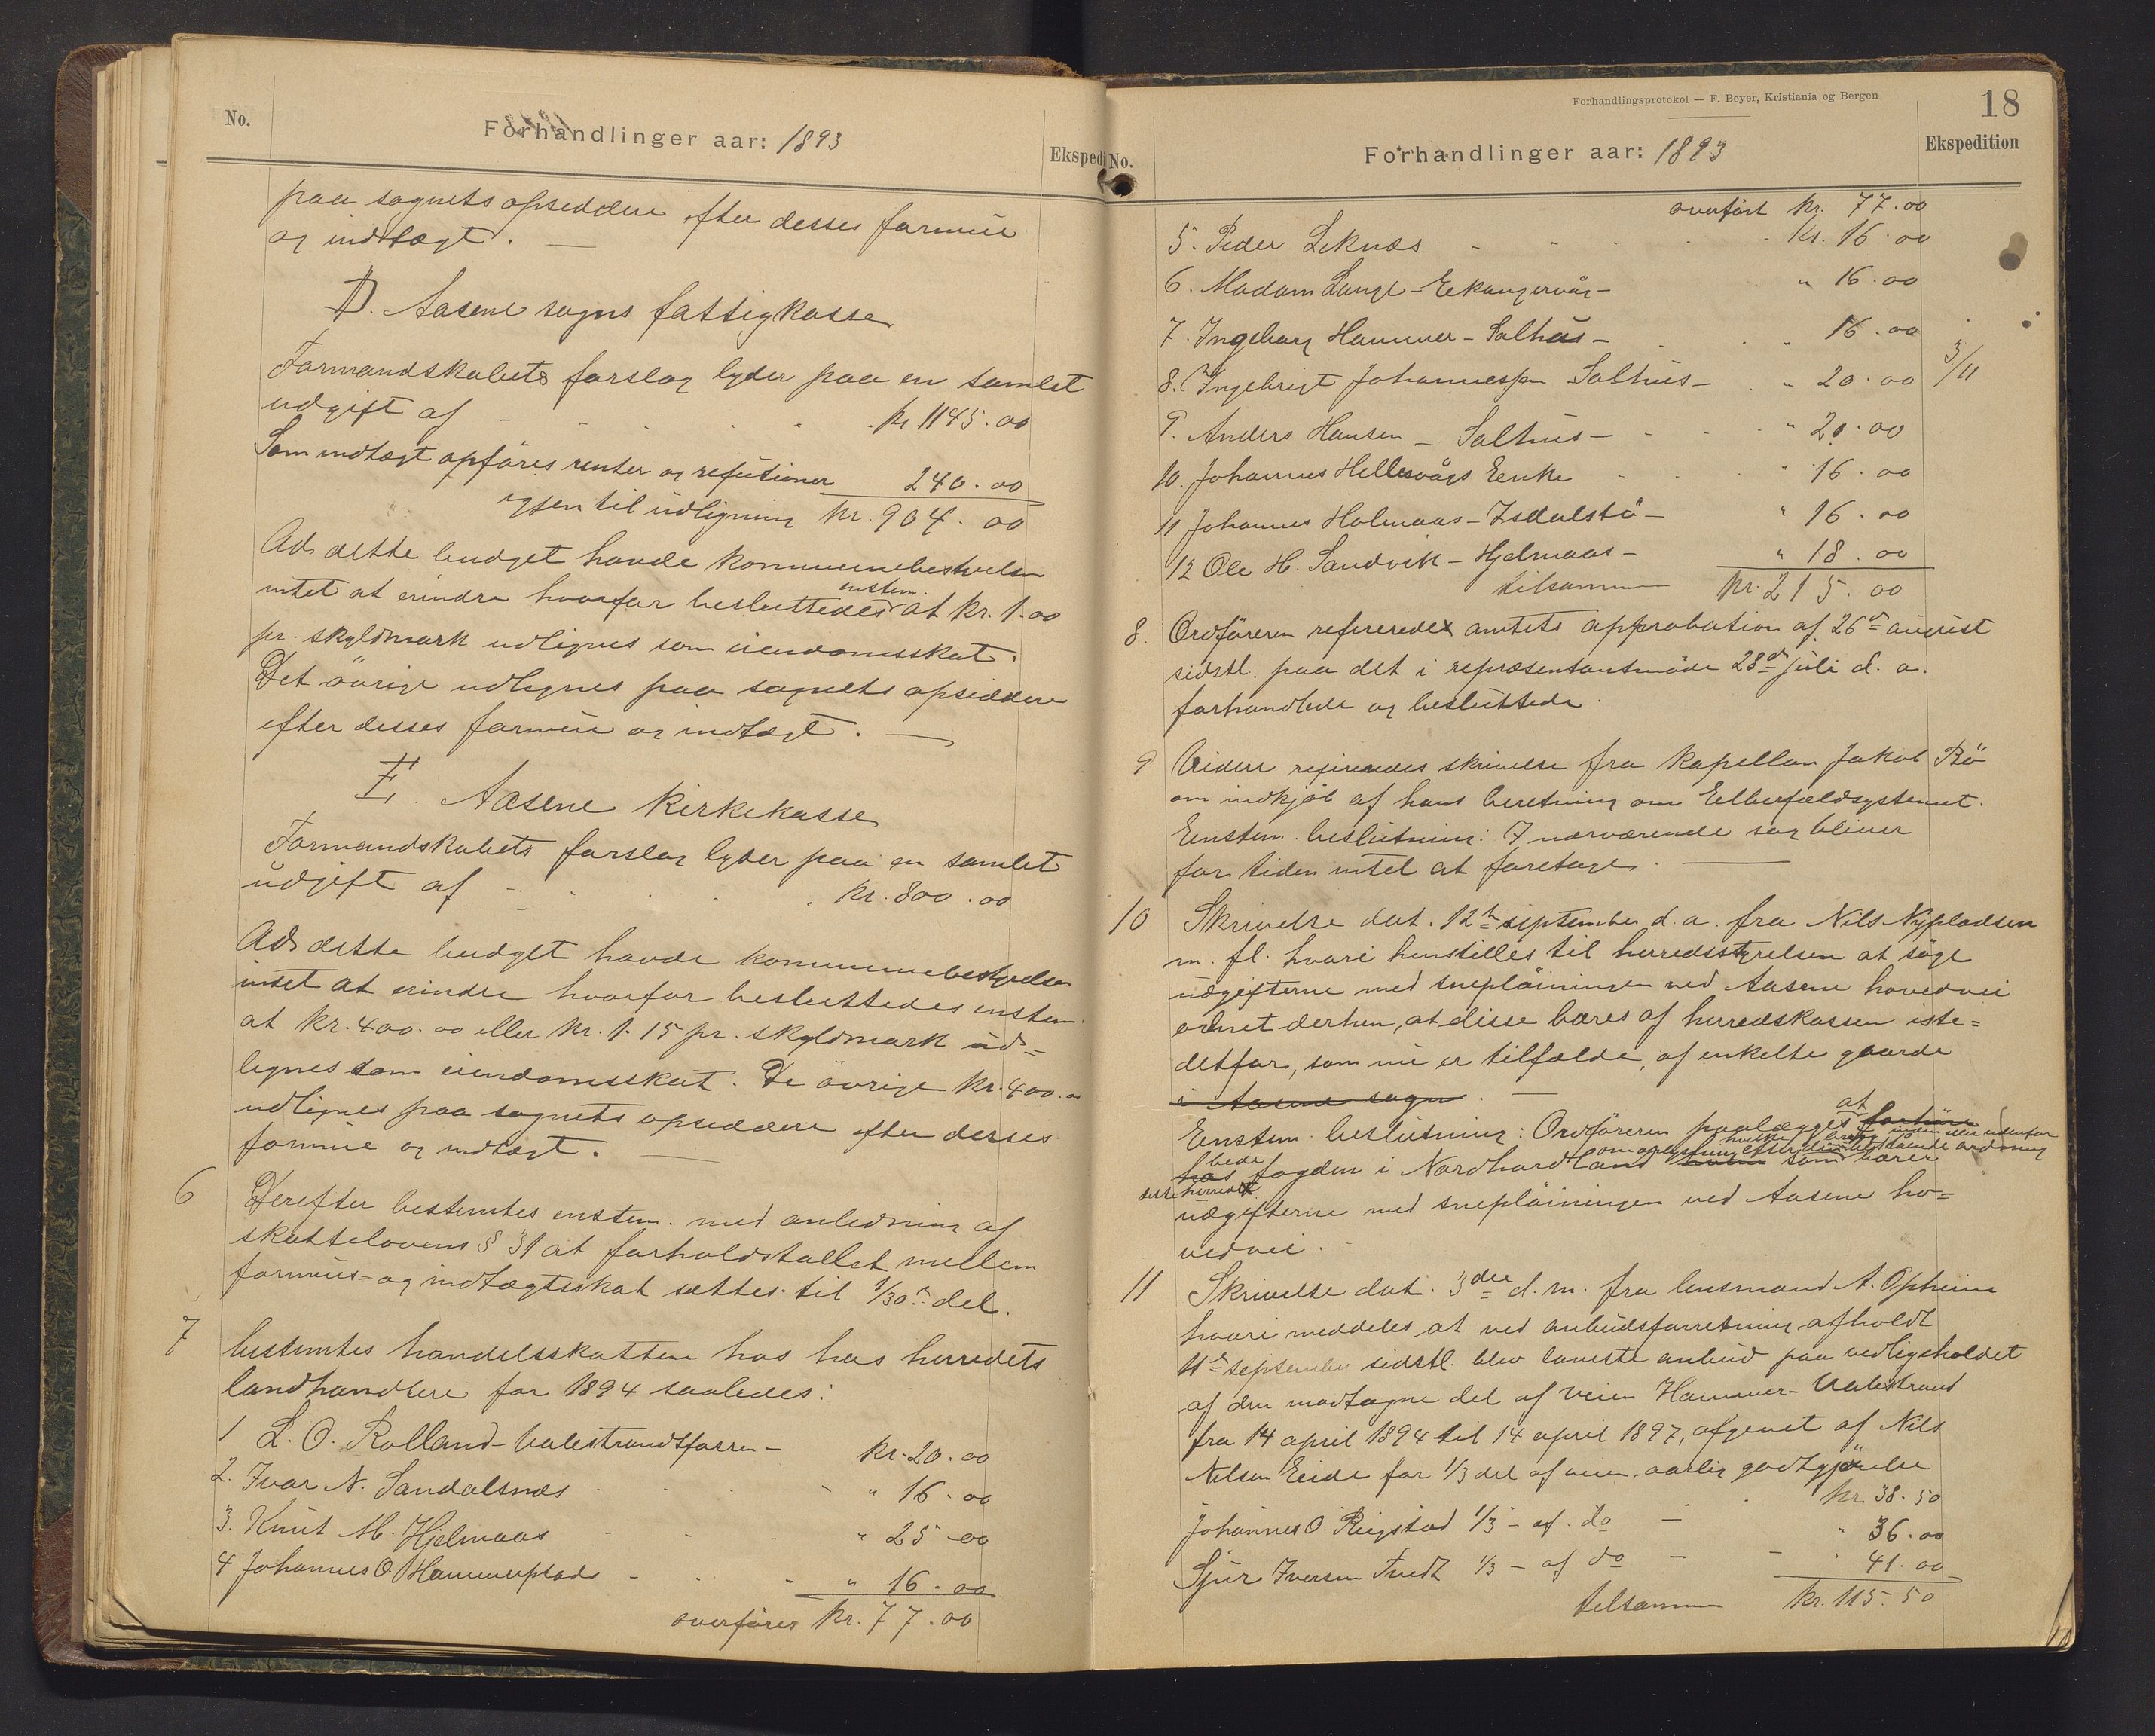 No.
Forhandlinger aar: 1893
Ekspedi
paa sognets opsiddere efter desses formue
og indtægt. —
D. Aasene sogns fattigkasse
Formandskabets forslag lyder paa en samlet
udgift af - - - - kr 1145.00
Som indtægt opføres renter og refusioner 240.00
igjen til udligning kr. 904.00
Ad dette budget havde kommunebestyrelsen
intet at erindre hvorfor besluttedes enstem. at kr. 1.00
pr. skyldmark udlignes som eiendomsskat.
Det övrige udlignes paa sognets opsiddere
efter desses formue og indtægt. —
E. Aasene Kirkekasse
Formandskabets forslag lyder paa en samlet
udgift af - - - - kr. 800.00
Ad dette budget havde kommunebestyrelsen
intet at erindre hvorfor besluttedes enstem.
at kr. 400.00 eller kr. 1.15 pr. skyldmark ud=
lignes som eiendomsskat. De övrige kr. 400.00
udlignes paa sognets opsiddere efter desses
formue og indtægt. —
6 Derefter bestemtes enstem. med anledning af
skattelovens § 31 at forholdstallet mellem
formues- og indtægtsskat sættes til 1/30 del.
7 bestemtes handelsskatten hos hos herredets
landhandlere for 1894 saaledes:
1 L. O. Rolland - Valestrandsfossen - kr. 20.00
2. Ivar N. Sandalsnæs - - " 16.00
3. Knut M. Hjelmaas - - " 25.00
4 Johannes O. Hammerplads - - " 16.00
overføres kr. 77.00
Forhandlingsprotokol — F. Beyer, Kristiania og Bergen
18
No.
Forhandlinger aar: 1893
Ekspedition
overført kr. 77.00
5. Peder Leknæs - - - kr. 16.00
6. Madam Lange - Eekangervåg - " 16.00
7. Ingeborg Hammer - Salhus - " 16.00
8. Ingebrigt Johannessen Salhus - " 20.00 3/11
9. Anders Hansen - Salhus - " 20.00
10. Johannes Hellesvågs Enke " 16.00
11 Johannes Holmaas - Isdalstö - " 16.00
12 Ole H. Sandvik - Hjelmaas - " 18.00
tilsammen kr. 215.00
8. Ordföreren refererede amtets approbation af 26de august
sidstl. paa det i repræsentantmöde 28de juli d. a.
forhandlede og besluttede.
9 Videre refereredes skrivelse fra Kapellan Jakob Bö
om indkjöb af hans beretning om Elberfeldsystemet.
Eenstem. beslutning: I nærværende sag bliver
for tiden intet at foretage. —
10 Skrivelse dat. 12te september d. a. fra Nils Nypladsen
m. fl. hvori henstilles til herredsstyrelsen at söge
udgifterne med sneplöiningen ved Aasene hovedvei
ordnet derhen, at disse bæres af herredskassen iste=
detfor, som nu er tilfælde, af enkelte gaarde
i Aasene sogn. —
Eenstem. beslutning: Ordföreren paalægges at forhöre
hos bede fogden i Nordhordland om oplysning hvilke brug inden eller udenfor
dette herredet efter den bestaaende ordning som bærer
udgifterne med sneplöiningen ved Aasene ho=
vedvei. —
11 Skrivelse dat. 3die d. m. fra lensmand A. Opheim
hvori meddeles at ved anbudsforretning afholdt
11te september sidstl. blev laveste anbud paa vedligeholdet
af den modtagne del af veien Hammer - Valestrand
fra 14 april 1894 til 14 april 1897, afgivet af Nils
Nilsen Eide for 1/3 del af veien, aarlig godtgjörelse
kr. 38.50
Johannes O. Rigstad 1/3 - af do - " 36.00
Sjur Iversen Tvedt 1/3 - af do - - " 41.00
tilsammen kr. 115.50